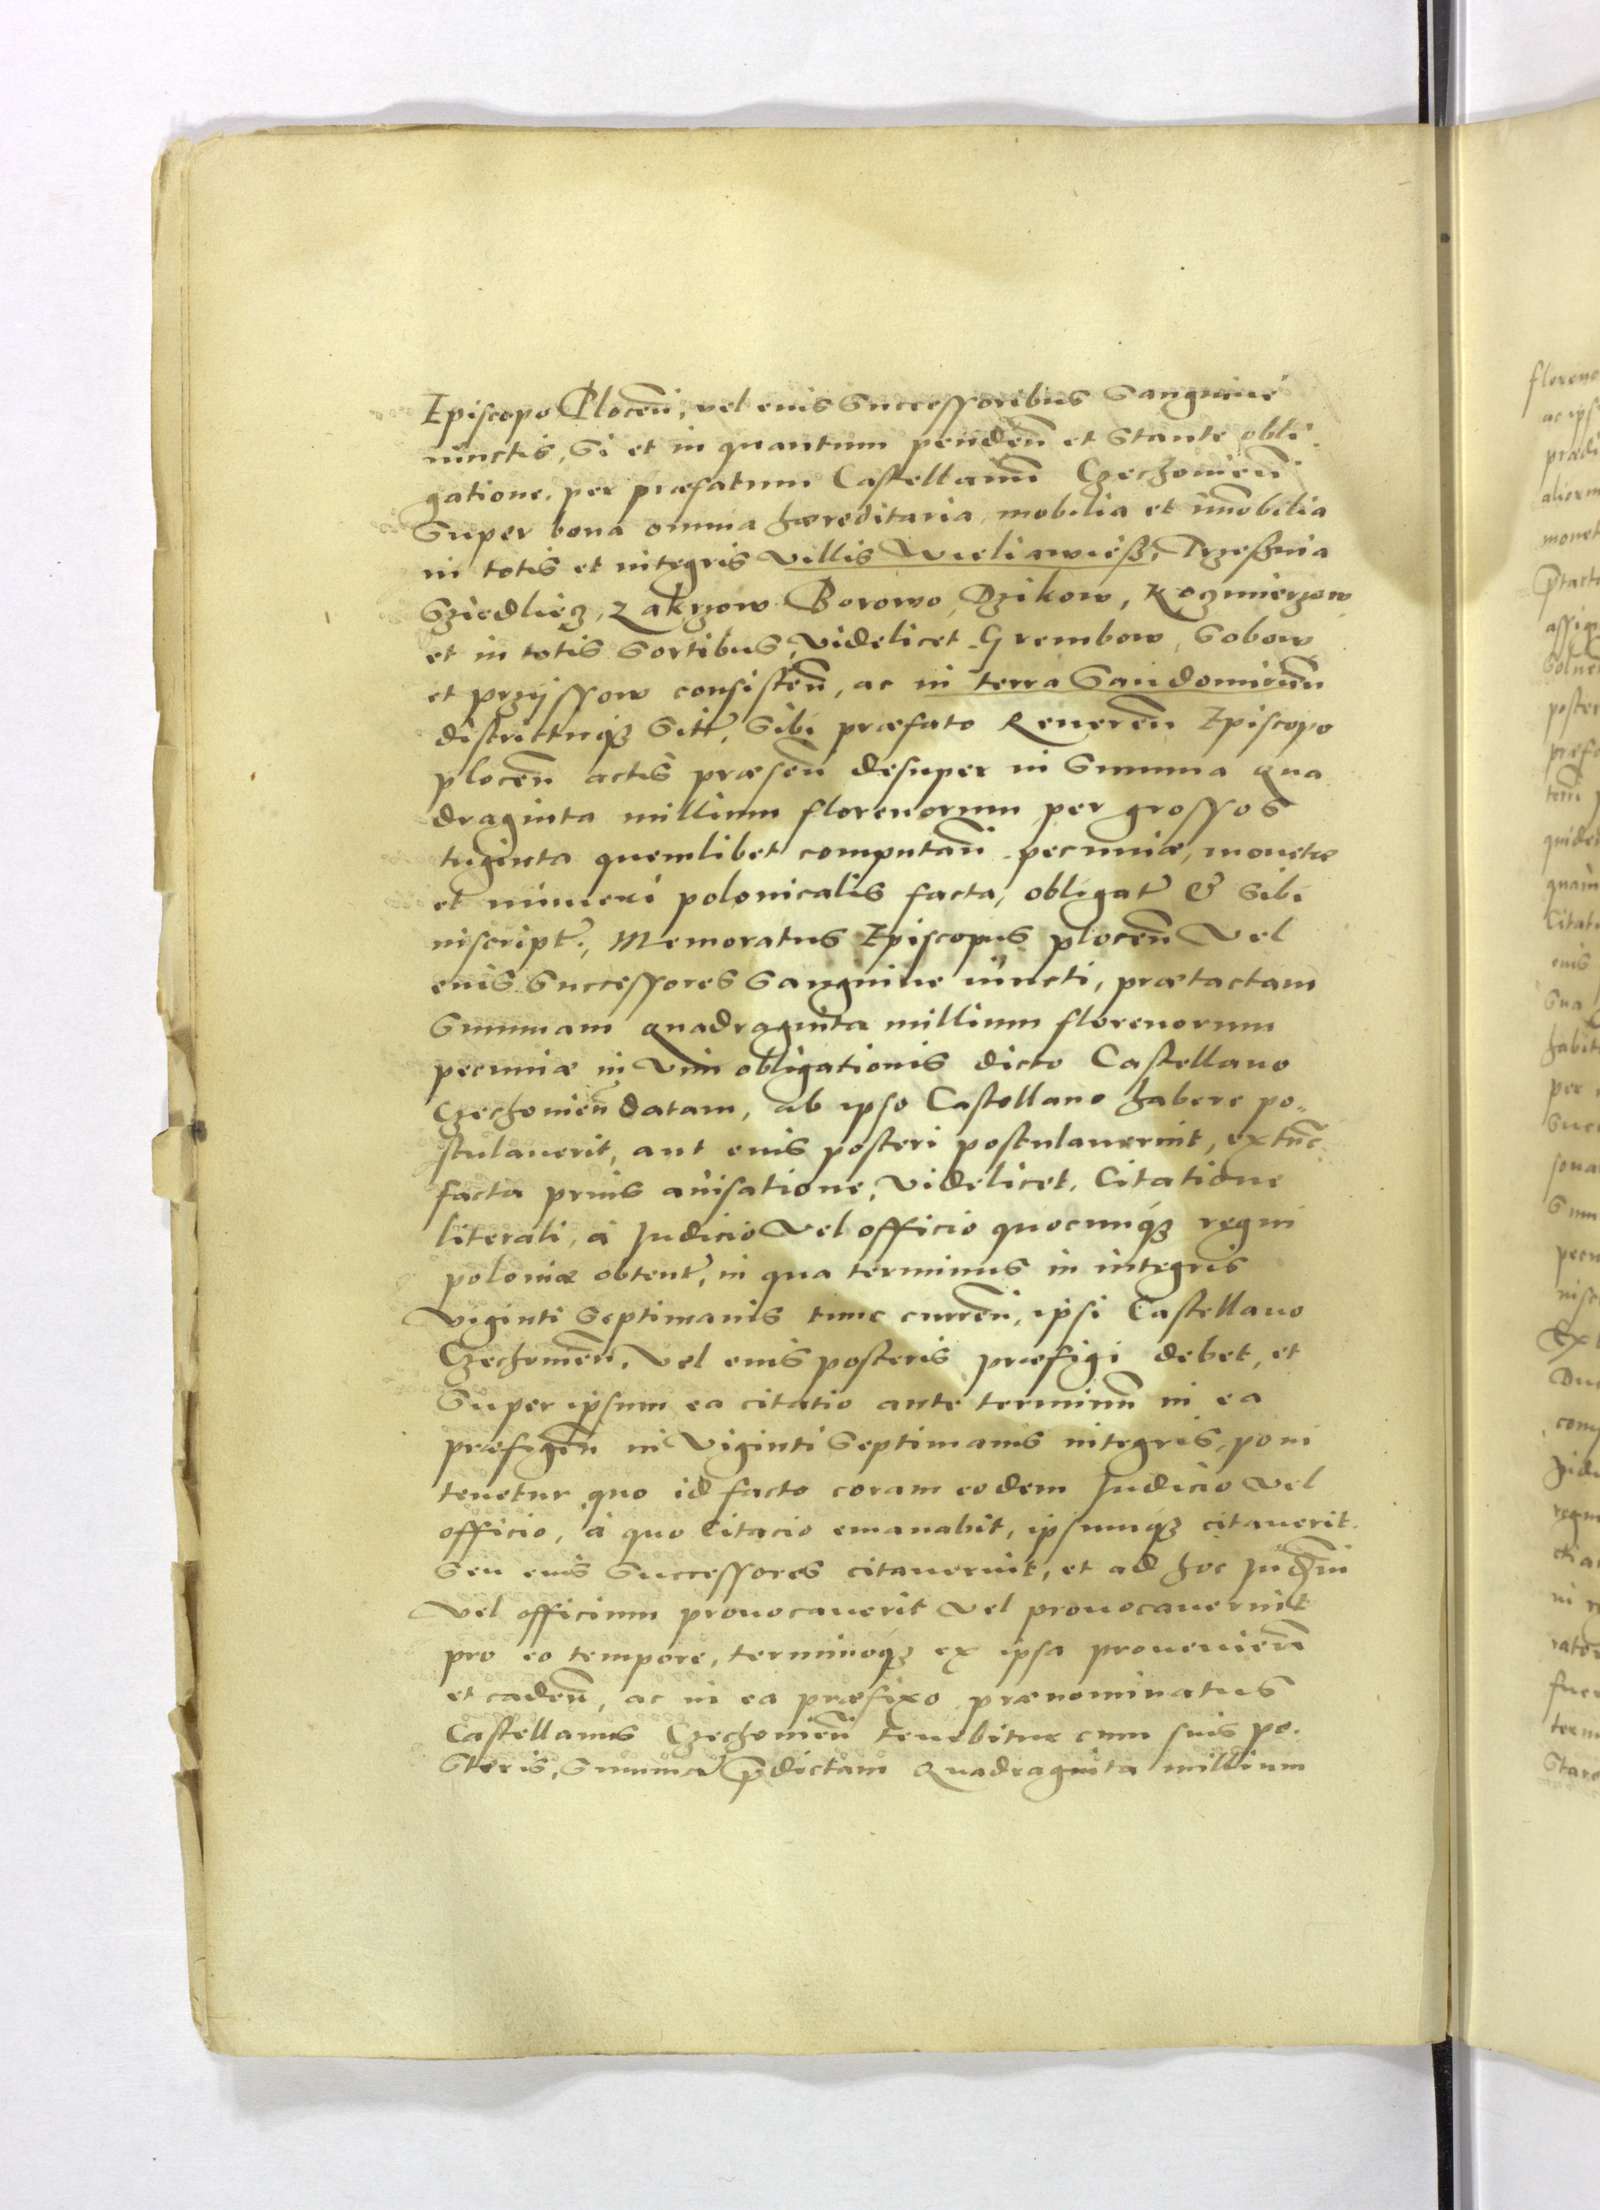 Episcopo Plocen̄, vel eius Successoribus Sanguine
iunctis, Si et in quantum penden̄ et Stante obli-
gatione, per præfatum Castellanū Czechonien̄
Super bona omnia hæreditaria, mobilia et im̄obilia
in totis et integris Villis Wieliawieß, Trzeßnia
Sziedliecz, Zakrzow Borowo, Dzikow, Kozmierzow
et in totis Sortibus, Videlicet Grembow, Sobow
et przyssow consisten̄, ac in terra Sandomirien̄
districtuqʒ Sitt̄, Sibi præfato Reueren̄ Episcopo
plocen̄ actis præsen̄ desuper in Summa qua
draginta millium florenorum per grossos
triginta quemlibet computan̄ pecuniæ, monetæ
et numeri polonicalis facta, obligat̄ & Sibi
inscript̄, Memoratus Episcopus plocen̄ Vel
eius Successores Sanguine iuncti, prætactam
Summam quadraginta millium florenorum
pecuniæ in Vim obligationis dicto Castellano
Czechonien̄ datam, ab ipso Castellano habere po-
stulauerit, aut eius posteri postulauerint, extūc
facta prius auisatione, Videlicet, Citatione
literali, à Judicio Vel officio quocunqʒ regni
poloniæ obtent̄, in qua terminus in integris
viginti Septimanis tunc curren̄, ipsi Castellano
Czechonien̄, Vel eius posteris præfigi debet, et
Super ipsum ea citatio ante terminū in ea
præfigen̄ in Viginti Septimanis integris, poni
tenetur quo id facto coram eodem Judicio Vel
officio, à quo Citacio emanabit, ipsumqʒ citauerit
Seu eius Successores citauerint, et ad hoc Judm̄
Vel officium prouocauerit Vel prouocauerint
pro eo tempore, terminoqʒ ex ipsa prouenien̄
et caden̄, ac in ea præfixo prænominatus
Castellanus Czechonien̄ tenebitur cum suis po-
Steris, Summā p̄dictam Quadraginta millium